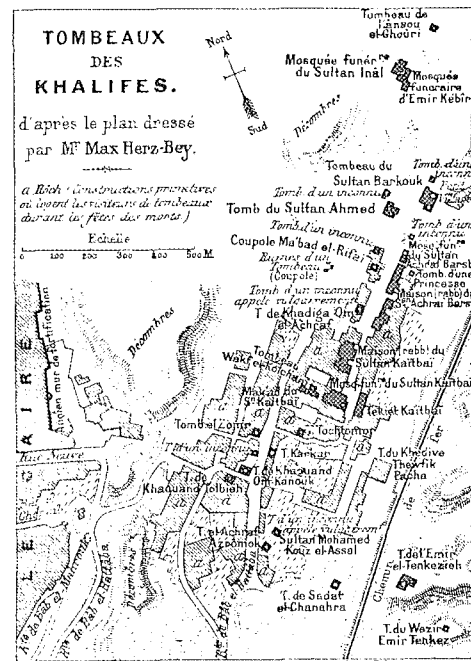 TOMBEAUX
DES
KHALIFES.
d'après le plan dressé
par Mr Max Herz-Bey.
a Hôch (Constructions primitives
où logent les visiteurs de tombeaux
durant les fêtes des morts)
Echelle
0 100 200 300 400 500 M.
Nord
Sud
Tombeau de
Kansou
el-Ghouri
Mosquée funérre
du Sultan Inâl
Mosquée
funéraire
d'Emir Kébir
Décombres
Tombeau du
Sultan Barkouk
Tomb. d'un inconnu
Tomb du Sultan Ahmed
Tomb. d'un inconnu
Coupole Ma'bad el-Rifaï
Ruines d'un
Tombeau
(Coupole)
Tomb. d'un
inconnu
Mosq. funre
du Sultan
Achraf Barsb.
Tomb. d'une
Princesse
Maison (rabb) du
St. Achraf Bars.
Tomb d'un inconnu
appelé vulgairement
T. de Khadiga Om
el-Achraf
Maison (rabb) du
Sultan Kaïtbaï
Tombeau
Mosq. funre du Sultan Kaïtbaï
Tekiet Kaïtbaï
Tomb. el-Zomr
Tochtomor
T. d'un inconnu
T. Karkar
T. de Khaouand
Om-Kanouk
T. de
Khaouand Tolbieh
T. du Khedive
Thewfik
Pacha
T. el-Achraf
T. d'un inconnu
Sultan Mohamed
Kouz el-Assal
T. de Sadat
el-Chanahra
T. de l'Emir
el-Tenkezieh
T. du Wezir
Emir Tenkez
Chemin de Fer
Décombres
Ancien mur de fortification
Rue Neuve
LE
AIRE
Décombres